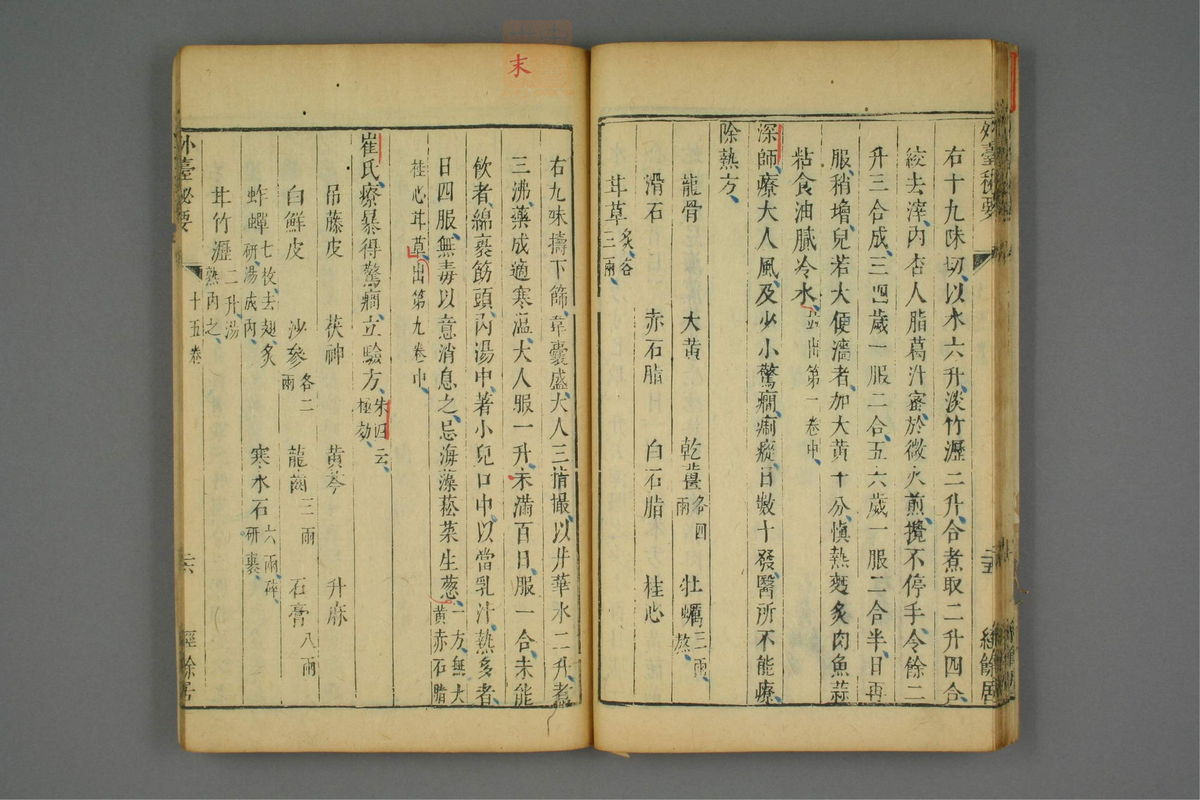 外臺秘要
右十九味切以水六升淡竹瀝二升合煮取二升四合
絞去滓內杏人脂葛汁蜜於微火煎攪不停手令餘二
升三合成三四歲一服二合五六歲一服二合半日再
服稍增兒若大便濇者加大黃十分慎熱麪炙肉魚蒜
粘食油膩冷水並出第一卷中
深師療大人風及少小驚癇瘛瘲日數十發醫所不能療
除熱方
龍骨 大黃 乾薑各四兩 牡蠣三兩熬
滑石 赤石脂 白石脂 桂心
甘草炙各三兩
右九味擣下篩韋囊盛大人三指撮以井華水二升煮
三沸藥成適寒溫大人服一升未滿百日服一合未能
飲者綿裹筯頭內湯中著小兒口中以當乳汁熱多者
日四服無毒以意消息之忌海藻菘菜生蔥一方無大黃赤石脂
桂心甘草出第九卷中
崔氏療暴得驚癇立驗方朱四云極効
吊藤皮 茯神 黃芩 升麻
白鮮皮 沙參各二兩 龍齒三兩 石膏八兩
蚱蟬七枚去翅炙研湯成內 寒水石六兩碎研裹
甘竹瀝二升湯熟內之
外臺秘要
十五卷
二六
經餘居